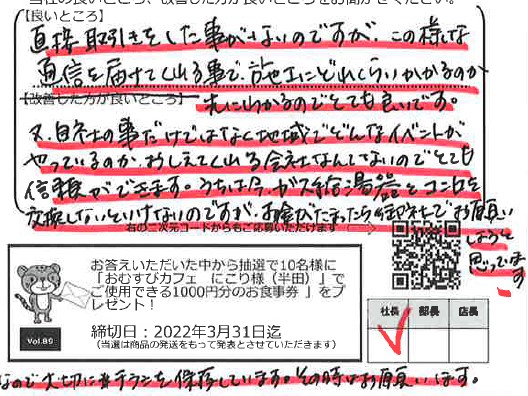 当社の良いところ、改善した方が良いところをお聞かせください。
【良いところ】
直接取引きをした事がないのですが、この様な
通信を届けてくれる事で、施工にどれくらいかかるのか
【改善した方が良いところ】
先にわかるのでとても良いです。
又、自社の事だけではなく地域でどんなイベントが
やっているのか、おしえてくれる会社なんてないのでとても
信頼ができます。うちは今、ガス給湯器とコンロを
交換しないといけないのですが、お金がたまったら御社でお願い
しようと
思っています。
右の二次元コードからもご応募いただけます
お答えいただいた中から抽選で10名様に
「おむすびカフェ にこり様（半田）」で
ご使用できる1000円分のお食事券 」をプ
レゼント！
締切日：2022年3月31日迄
（当選は商品の発送をもって発表とさせていただきます）
Vol.89
社長 部長 店長
なので大切に チラシを保存しています。その時はお願いします。